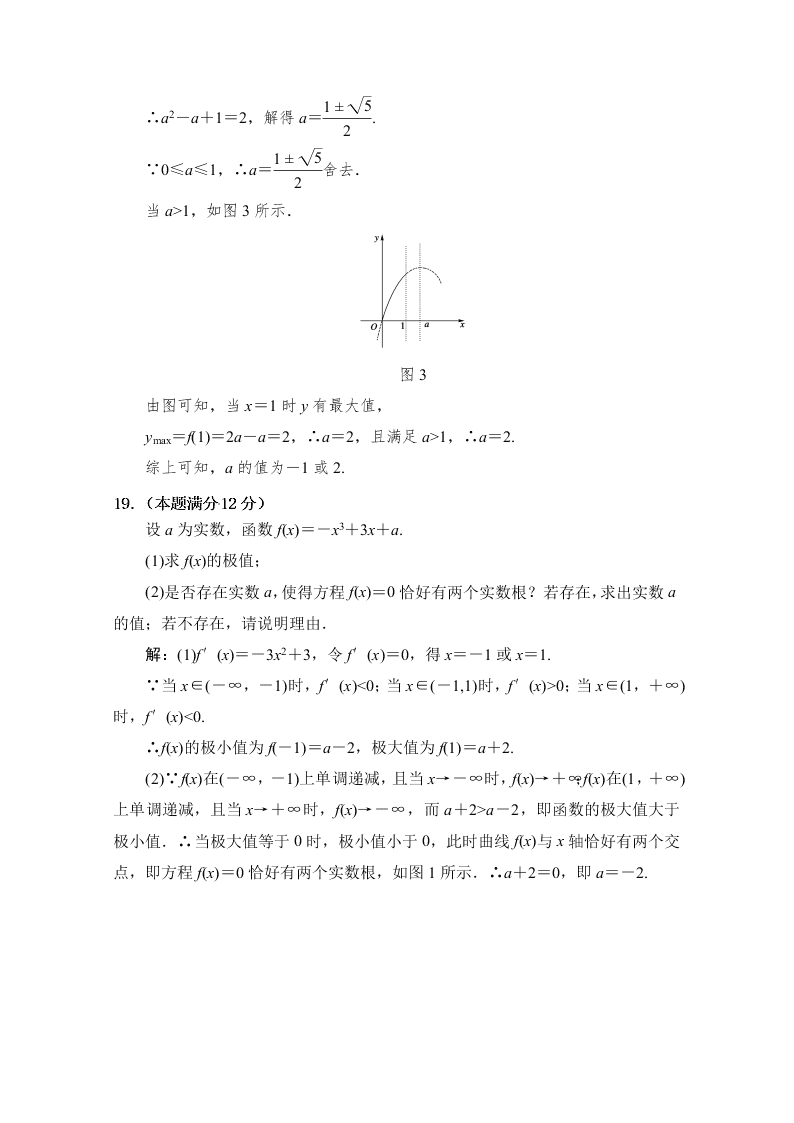 ∴a²－a＋1＝2，解得 a＝(1±√5)/2.
∵0≤a≤1，∴a＝(1±√5)/2舍去．
当 a>1，如图 3 所示．
y
O 1 a x
图 3
由图可知，当 x＝1 时 y 有最大值，
ymax＝f(1)＝2a－a＝2，∴a＝2，且满足 a>1，∴a＝2.
综上可知，a 的值为－1 或 2.
19．（本题满分12 分）
设 a 为实数，函数 f(x)＝－x³＋3x＋a.
(1)求 f(x)的极值；
(2)是否存在实数 a，使得方程 f(x)＝0 恰好有两个实数根？若存在，求出实数 a
的值；若不存在，请说明理由．
解：(1)f′(x)＝－3x²＋3，令 f′(x)＝0，得 x＝－1 或 x＝1.
∵当 x∈(－∞，－1)时，f′(x)<0；当 x∈(－1,1)时，f′(x)>0；当 x∈(1，＋∞)
时，f′(x)<0.
∴f(x)的极小值为 f(－1)＝a－2，极大值为 f(1)＝a＋2.
(2)∵f(x)在(－∞，－1)上单调递减，且当 x→－∞时，f(x)→＋∞；f(x)在(1，＋∞)
上单调递减，且当 x→＋∞时，f(x)→－∞，而 a＋2>a－2，即函数的极大值大于
极小值．∴当极大值等于 0 时，极小值小于 0，此时曲线 f(x)与 x 轴恰好有两个交
点，即方程 f(x)＝0 恰好有两个实数根，如图 1 所示．∴a＋2＝0，即 a＝－2.